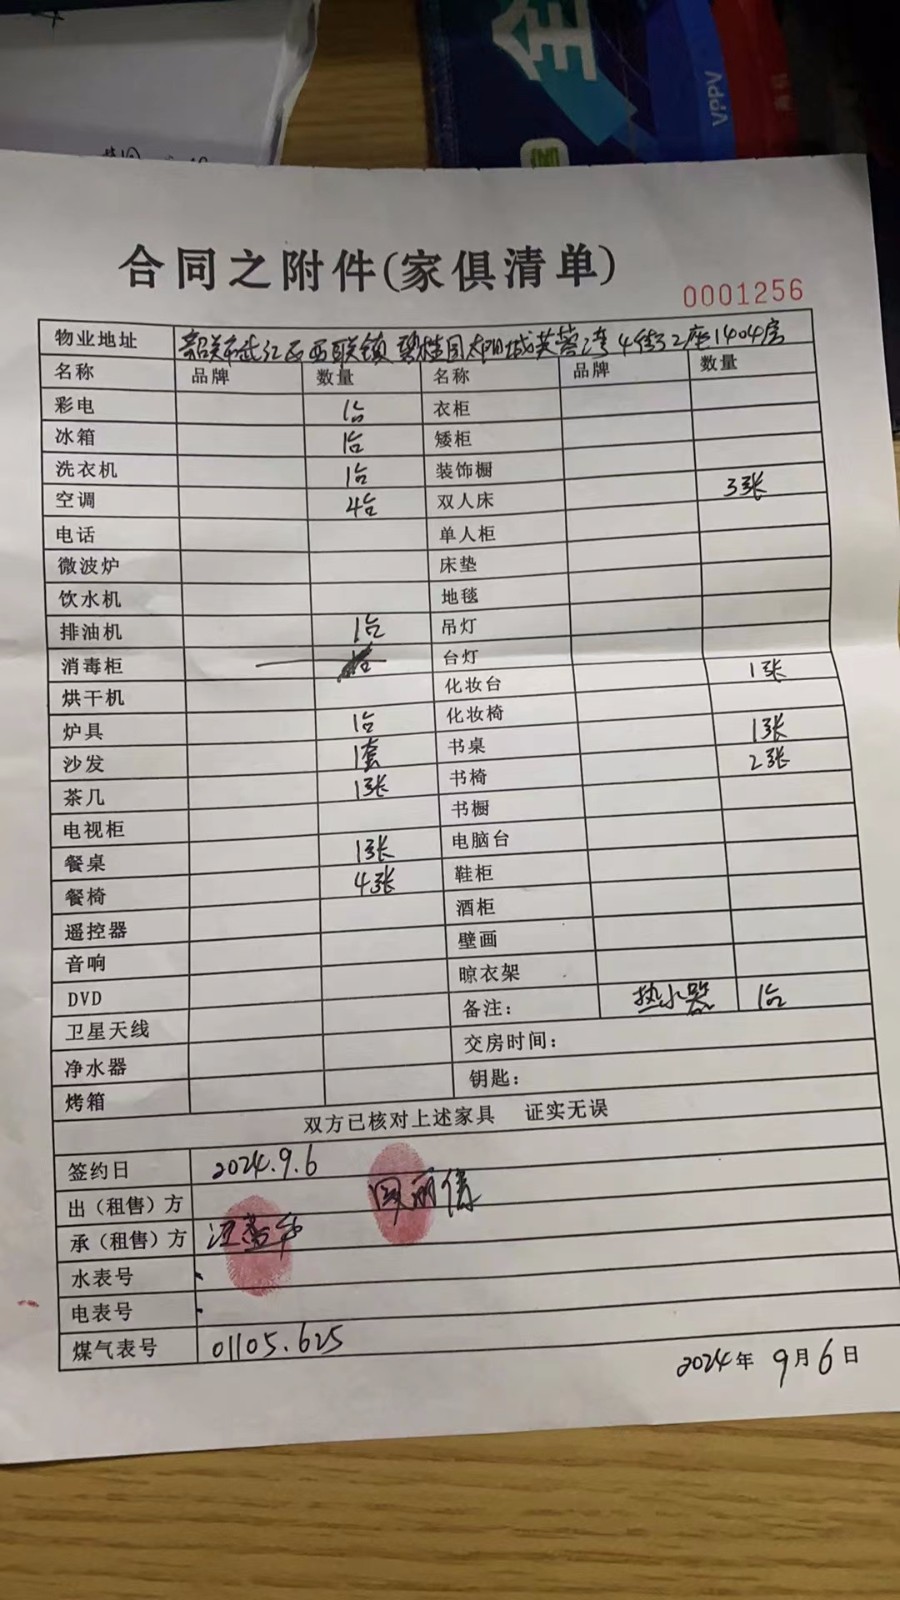 全
VPPV
合同之附件(家俱清单)
0001256
物业地址 韶关市武江区西联镇碧桂园太阳城芙蓉湾4街2座1404房
名称 品牌 数量 名称 品牌 数量
彩电 1台 衣柜
冰箱 1台 矮柜
洗衣机 1台 装饰橱
空调 4台 双人床 3张
电话 单人柜
微波炉 床垫
饮水机 地毯
排油机 1台 吊灯
消毒柜 台灯
烘干机 化妆台 1张
炉具 1台 化妆椅
沙发 1套 书桌 1张
茶几 1张 书椅 2张
电视柜 书橱
餐桌 1张 电脑台
餐椅 4张 鞋柜
遥控器 酒柜
音响 壁画
DVD 晾衣架
卫星天线 备注: 热水器 1台
净水器 交房时间:
烤箱 钥匙:
双方已核对上述家具 证实无误
签约日 2024.9.6
出（租售）方 丽倩
承（租售）方
水表号
电表号
煤气表号 01105.625
2024年 9月6日